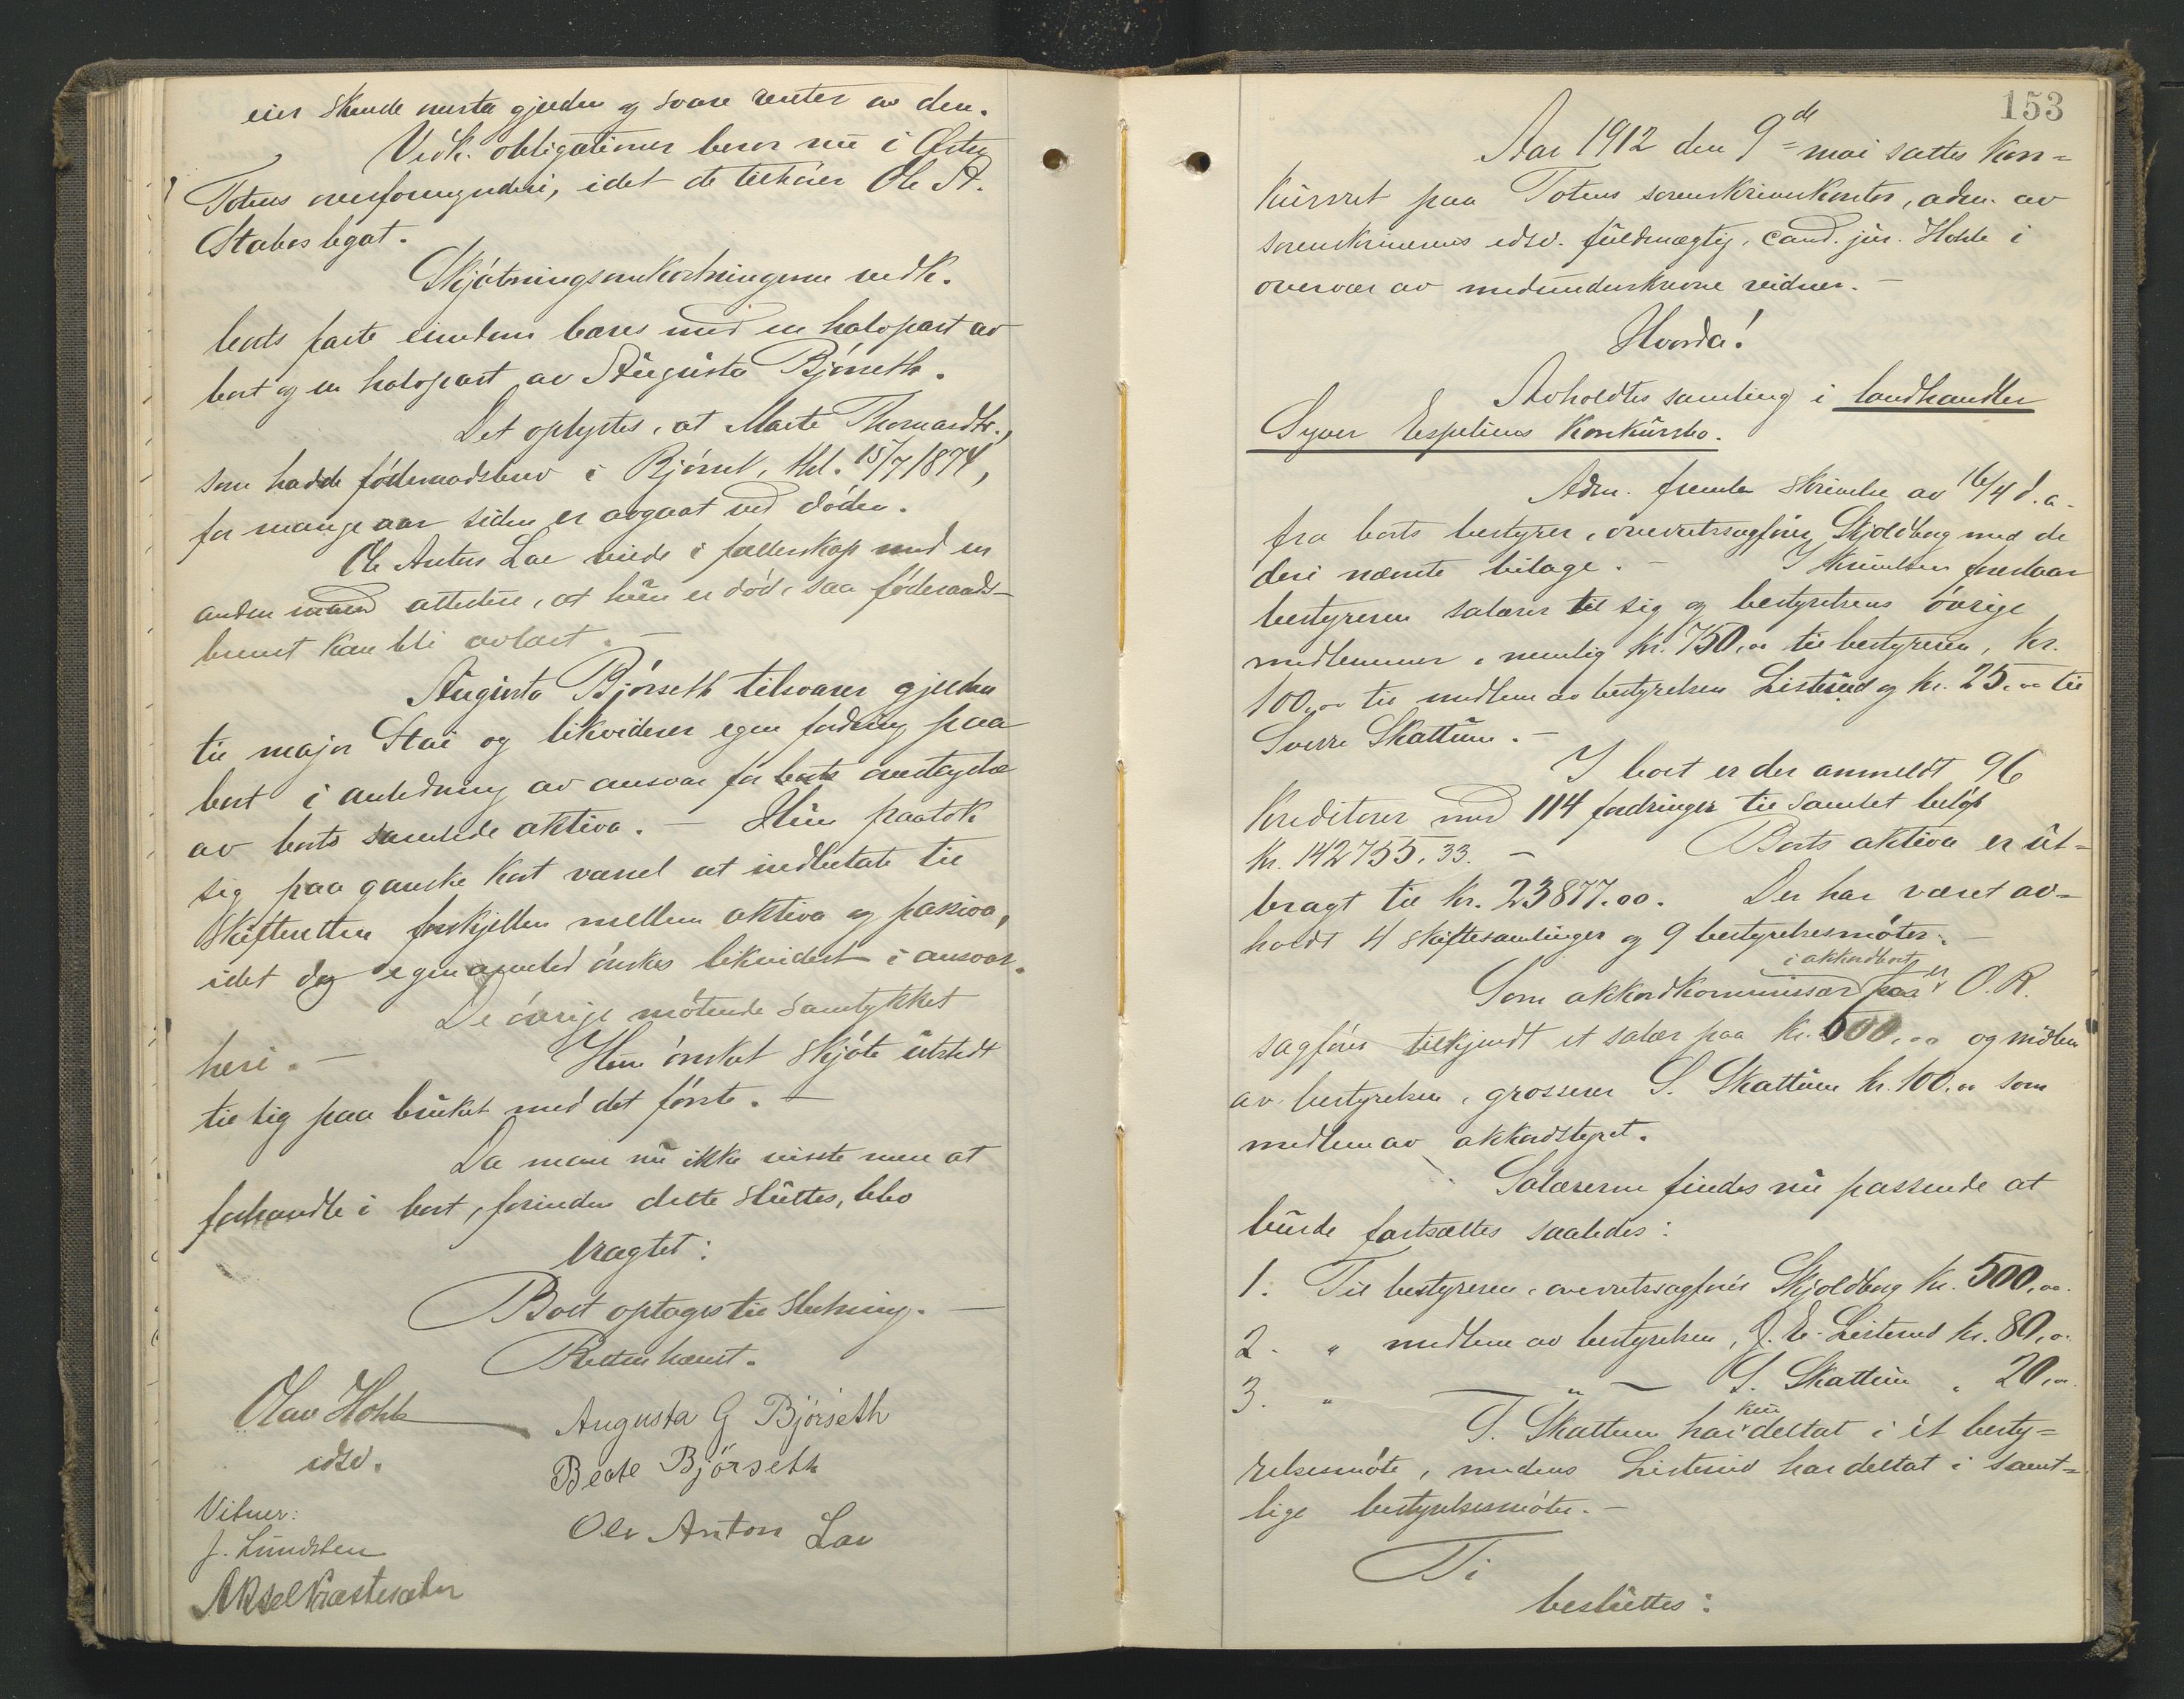 eier skulde overta gjælden og svare renter av den.
Vedk. obligationer beror nu i Østre
Totens overformynderi, idet de tilhører Ole St.
Stabos legat.
Skjøtningsomkostningerne vedk.
boets faste eiendom bæres med en halvpart av
boet og en halvpart av Augusta Bjørseth.
Det oplystes, at Marte Thomasdtr.,
som hadde føderaadsbrev i Bjørset, thl. 15/7 1874,
for mange aar siden er avgaat ved døden.
Ole Anton Lae vilde i fælleskap med en
anden mand attestere, at hun er død, saa føderaads-
brevet kan bli avlæst. -
Augusta Bjørseth tilsvarer gjælden
til major Stai og likviderer egen fordring paa
boet i anledning av ansvar for boets overtagelse
av boets samlede aktiva. - Hun paatok
sig paa ganske kort varsel at indbetale til
skifteretten forskjellen mellem aktiva og passiva,
idet dog egen arvelod ønskes likvidert i ansvar.
De øvrige møtende samtykket
heri. - Hun ønsket skjøte utstedt
til sig paa bruket med det første. -
Da man nu ikke visste mere at
forhandle i boet, forinden dette sluttes, blev
vragtet:
Boet optages til slutning. -
Retten hævet.
Olav Hohle
edsv.
Augusta G Bjørseth
Beate Bjørseth
Ole Anton Lae
Vitner:
J. Lundsten
Aksel Præstesæter
153
Aar 1912 den 9de mai sattes kon=
kursret paa Totens sorenskriverkontor, adm. av
sorenskriverens edsv. fuldmægtig, cand. jur. Hohle i
overvær av medunderskrevne vidner. -
Hvorda!
Avholdtes samling i landhandler
Syver Espeliens konkursbo.
Adm. fremla skrivelse av 16/4 d. a.
fra boets bestyrer, overretssagfører Skjoldborg med de
deri nævnte bilage. - I skrivelsen foreslaar
bestyreren salærer til sig og bestyrelsens øvrige
medlemmer, nemlig kr. 750,00 til bestyreren, kr.
100,00 til medlem av bestyrelsen Listerud og kr. 25,00 til
Sverre Skattum. -
I boet er der anmeldt 96
kreditorer med 114 fordringer til samlet beløp
kr. 142755,33. - Boets aktiva er ut=
bragt til kr. 23877.00. Der har været av=
holdt 4 skiftesamlinger og 9 bestyrelsesmøter. -
i akkordboet
Som akkordkommissær er O. R.
sagfører tilkjendt et salær paa kr. 500,00 og medlem
av bestyrelsen, grosserer S. Skattum kr. 100,00 som
medlem av akkordstyret.
Salærerne findes nu passende at
burde fastsættes saaledes:
1. Til bestyreren, overretssagfører Skjoldborg kr. 500,00.
2. " medlem av bestyrelsen, J. E. Listerud kr. 80,00
3. " - " - S. Skattum " 20,00.
S. Skattum har kun deltat i ét besty=
relsesmøte, medens Listerud har deltat i samt=
lige bestyrelsesmøter. -
Ti
besluttes: